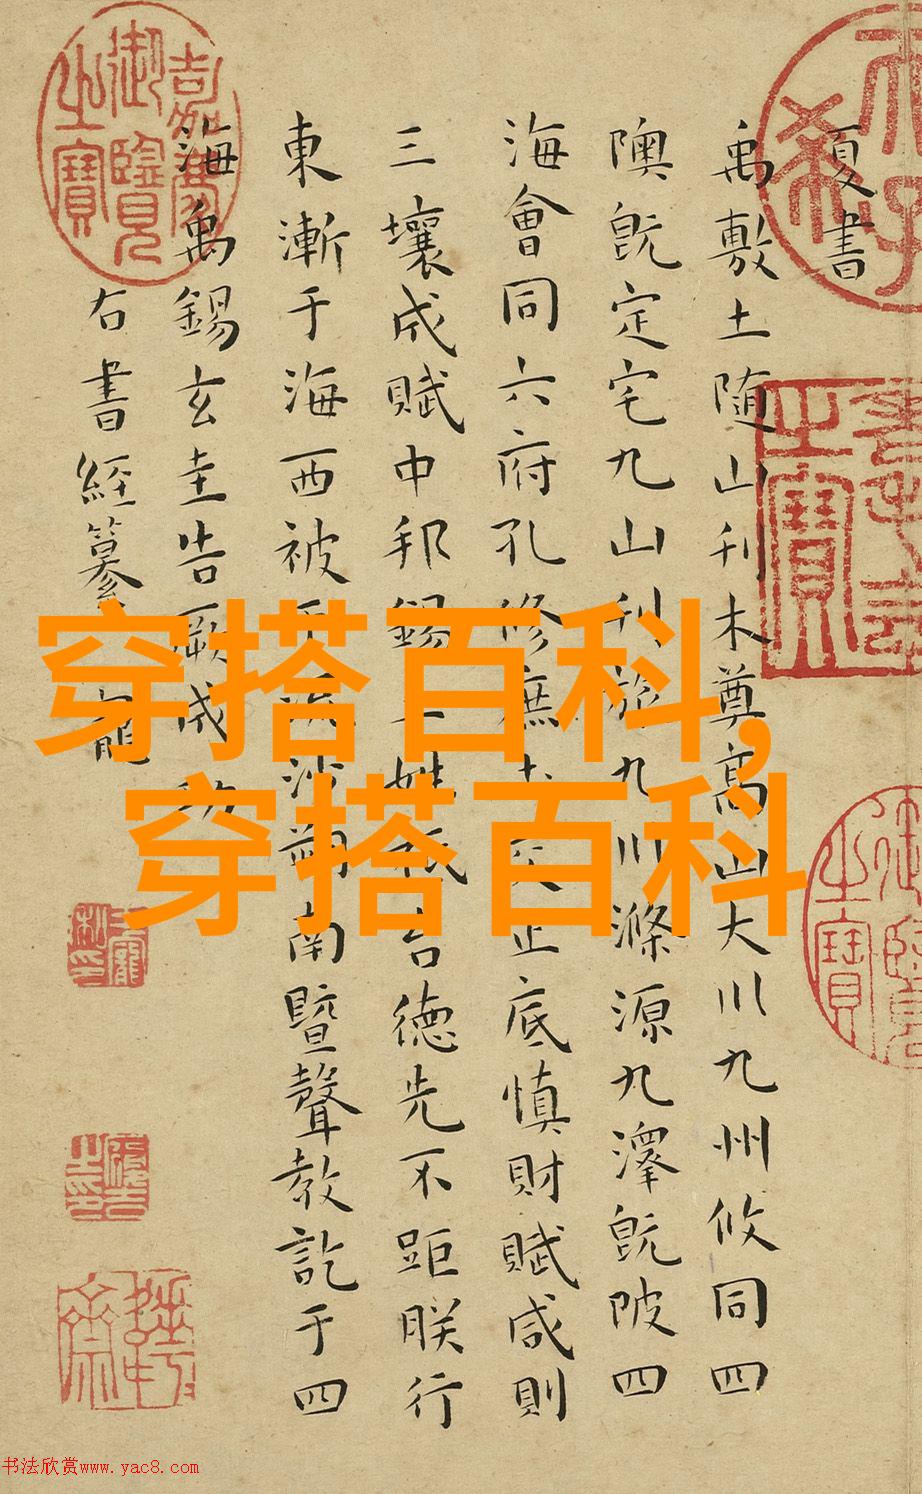 夏書
禹敷土随山刊木尊髙山大川九州攸同四
隩既定宅九山刊旅九川滌源九澤既陂四
海會同六府孔修庶土交正底慎財賦咸則
三壤成賦中邦錫土姓祗台德先不距朕行
東漸于海西被于流沙朔南暨聲教訖于四
海禹錫玄圭告厥成功
右書經纂寵
穿搭百科,
穿搭百科
嘉慶御覽之寶
书法欣赏www.yac8.com